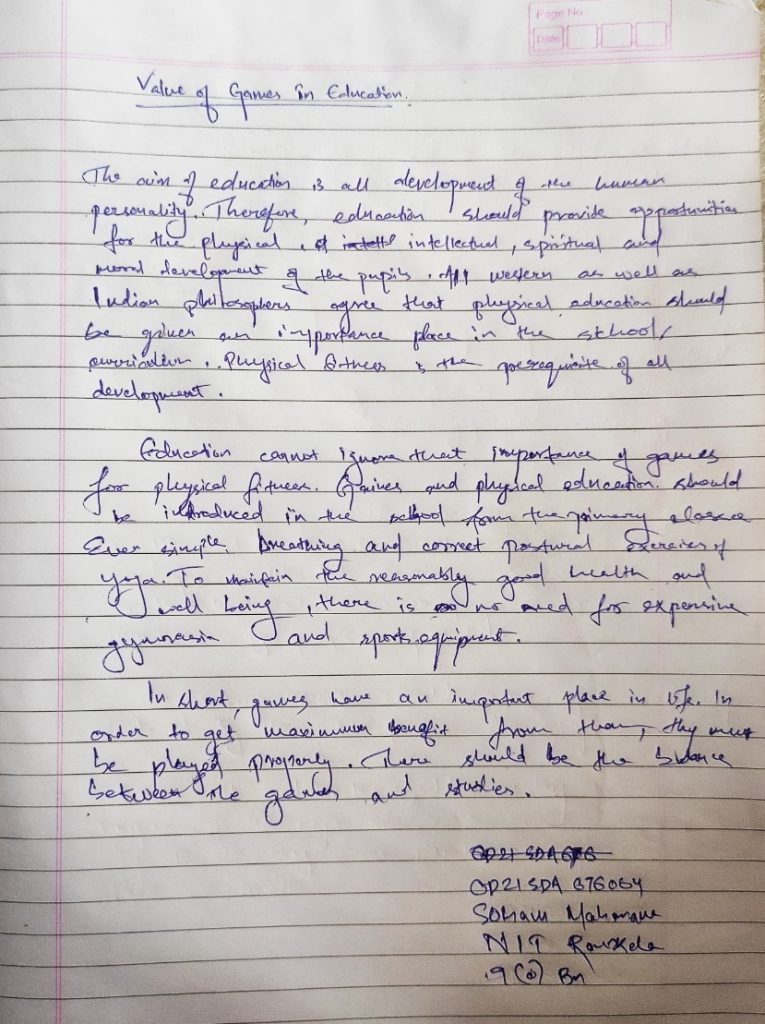 Page No.
Date
Value of Games in Education.
The aim of education is all development of the human
personality. Therefore, education should provide opportunities
for the physical, intellectual, spiritual and
moral development of the pupils. All western as well as
Indian philosophers agree that physical education should
be given an importance place in the school,
curriculum. Physical fitness is the prerequisite of all
development.
Education cannot ignore that importance of games
for physical fitness. Games and physical education. should
be introduced in the school form the primary classes
Even simple, breathing and correct postural exercises of
yoga. To maintain the reasonably good health and
well being, there is no need for expensive
gymnasia and sports equipment.
In short, games have an important place in life. In
order to get maximum benefit from them, they must
be played properly. There should be the balance
between the games and studies.
OD21 SDA 676064
Soham
NIT Rourkela
9 (O) Bn